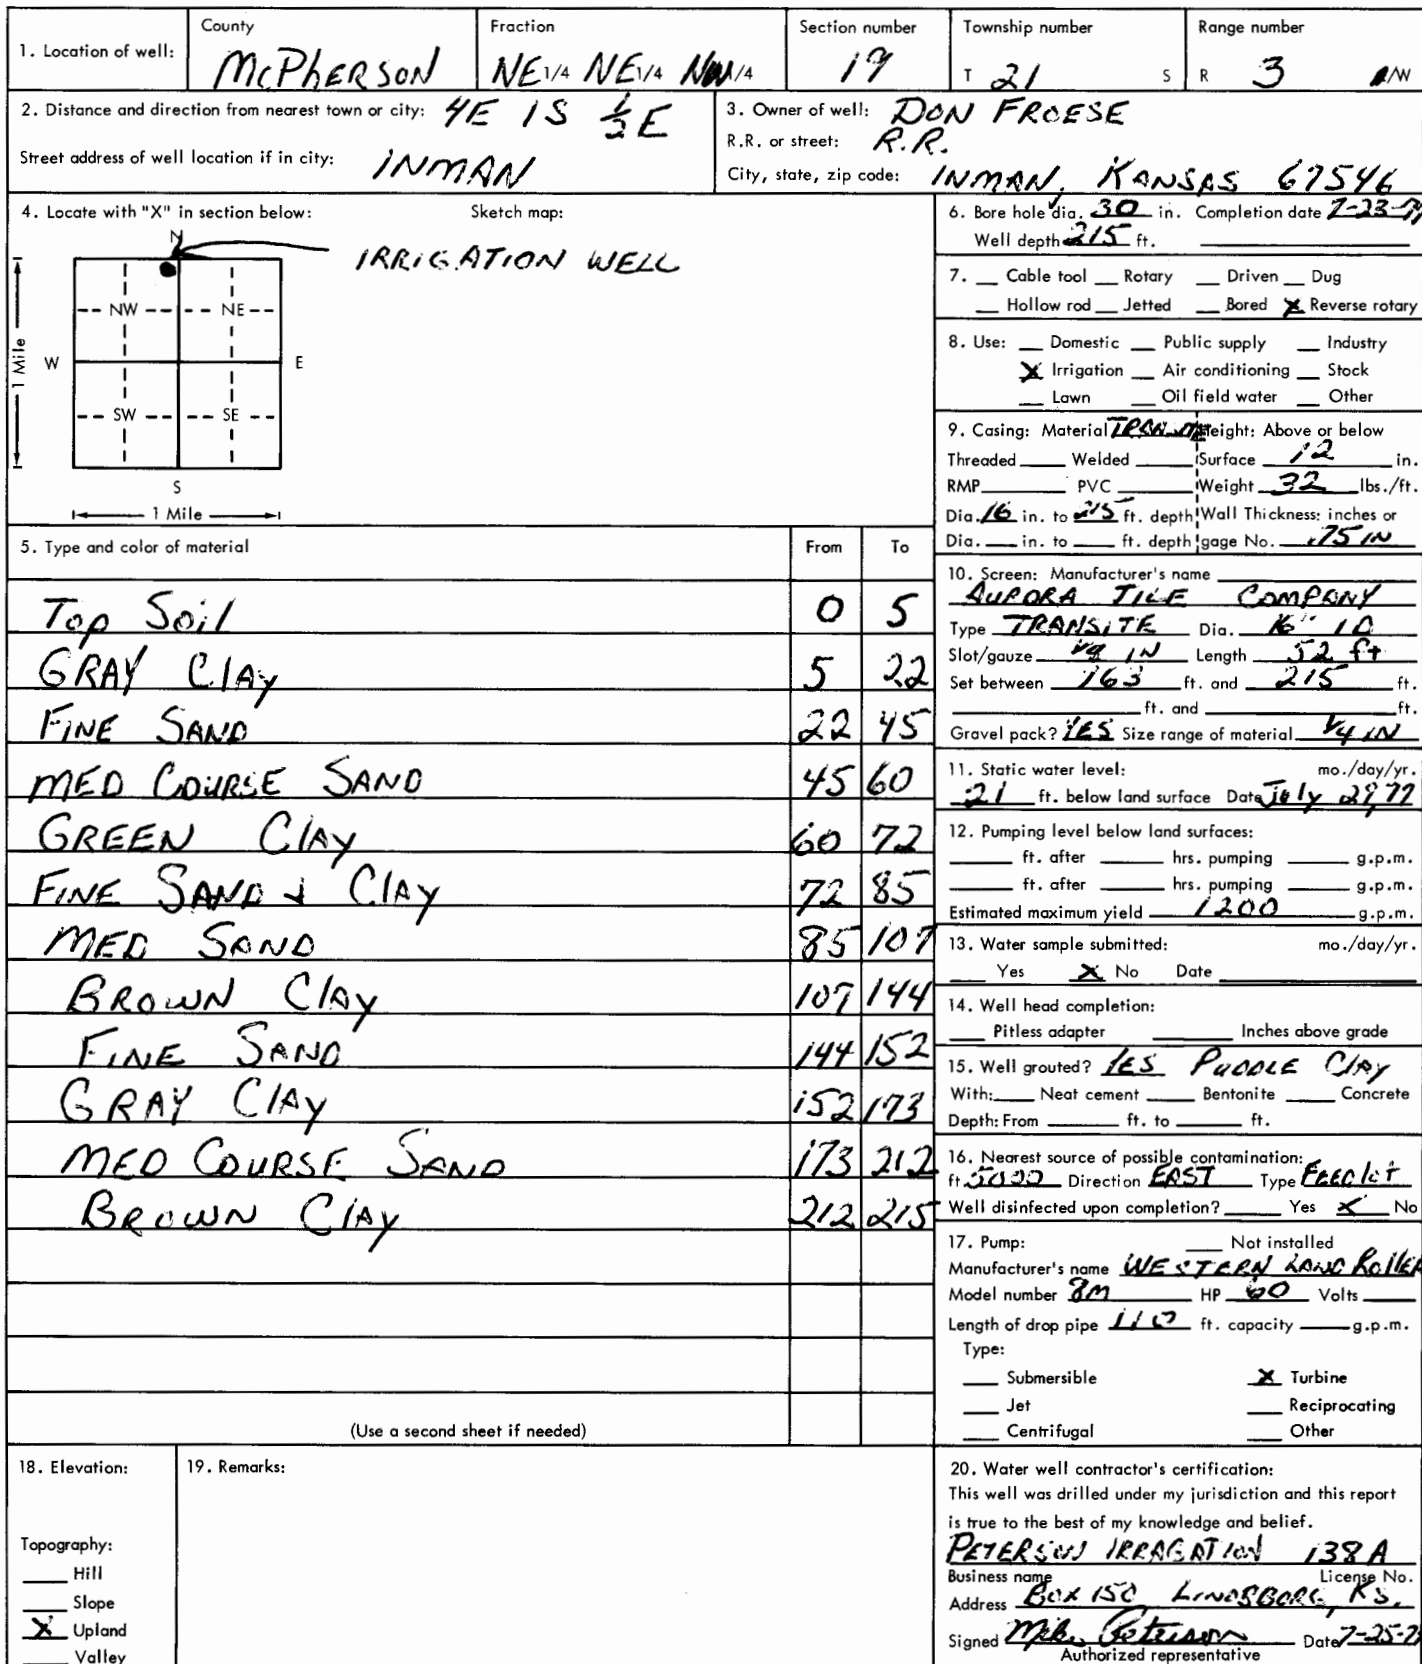 1. Location of well:
County
McPherson
Fraction
NE 1/4 NE 1/4 NW 1/4
Section number
19
Township number
T 21 S
Range number
R 3 E/W
2. Distance and direction from nearest town or city: 4E 1S 1/2 E
Street address of well location if in city: INMAN
3. Owner of well: DON FROESE
R.R. or street: R.R.
City, state, zip code: INMAN, KANSAS 67546
4. Locate with "X" in section below:
Sketch map:
N
IRRIGATION WELL
NW
NE
W
E
SW
SE
S
1 Mile
1 Mile
5. Type and color of material From To
Top Soil 0 5
GRAY Clay 5 22
FINE SAND 22 45
MED COURSE SAND 45 60
GREEN Clay 60 72
FINE SAND & Clay 72 85
MED SAND 85 107
BROWN Clay 107 144
FINE SAND 144 152
GRAY Clay 152 173
MED COURSE SAND 173 212
BROWN Clay 212 215
(Use a second sheet if needed)
6. Bore hole dia. 30 in. Completion date 7-23-
Well depth 215 ft.
7. Cable tool Rotary Driven Dug
Hollow rod Jetted Bored X Reverse rotary
8. Use: Domestic Public supply Industry
X Irrigation Air conditioning Stock
Lawn Oil field water Other
9. Casing: Material Height: Above or below
Threaded Welded Surface 12 in.
RMP PVC Weight 32 lbs./ft.
Dia. 16 in. to 215 ft. depth Wall Thickness: inches or
Dia. in. to ft. depth gage No. .75 IN
10. Screen: Manufacturer's name
AURORA TILE COMPANY
Type TRANSITE Dia. 16" ID
Slot/gauze IN Length 52 ft
Set between 163 ft. and 215 ft.
ft. and ft.
Gravel pack? YES Size range of material 1/4 IN
11. Static water level: mo./day/yr.
21 ft. below land surface Date July 77
12. Pumping level below land surfaces:
ft. after hrs. pumping g.p.m.
ft. after hrs. pumping g.p.m.
Estimated maximum yield 1200 g.p.m.
13. Water sample submitted: mo./day/yr.
Yes X No Date
14. Well head completion:
Pitless adapter Inches above grade
15. Well grouted? YES PUDDLE Clay
With: Neat cement Bentonite Concrete
Depth: From ft. to ft.
16. Nearest source of possible contamination:
ft. 5000 Direction EAST Type FEEDlot
Well disinfected upon completion? Yes X No
17. Pump: Not installed
Manufacturer's name WESTERN LAND ROLLER
Model number 8M HP 60 Volts
Length of drop pipe 110 ft. capacity g.p.m.
Type:
Submersible X Turbine
Jet Reciprocating
Centrifugal Other
18. Elevation:
Topography:
Hill
Slope
X Upland
Valley
19. Remarks:
20. Water well contractor's certification:
This well was drilled under my jurisdiction and this report
is true to the best of my knowledge and belief.
PETERSON IRRAGATION 138 A
Business name License No.
Address BOX 150 LINDSBORG, KS.
Signed Mike Peterson Date 7-25-
Authorized representative